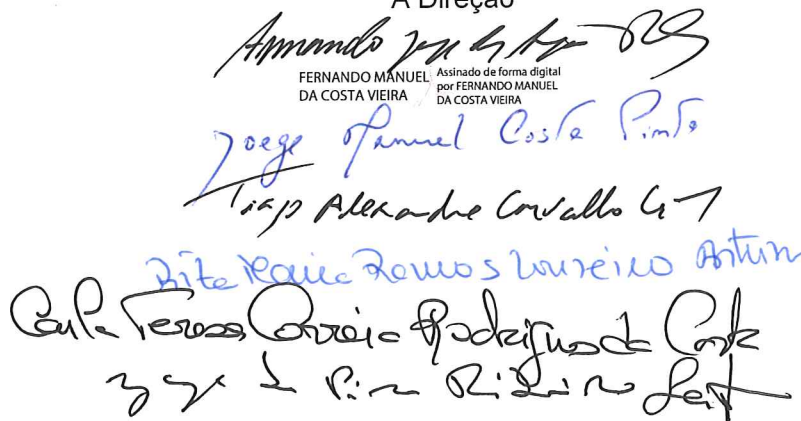 A Direção
Armando
FERNANDO MANUEL
DA COSTA VIEIRA
Assinado de forma digital
por FERNANDO MANUEL
DA COSTA VIEIRA
Jorge Manuel Costa Pinto
Tiago Alexandre Carvalho
Rita Maria Ramos Loureiro
Carla Teresa Correia Rodrigues da Costa
Ribeiro